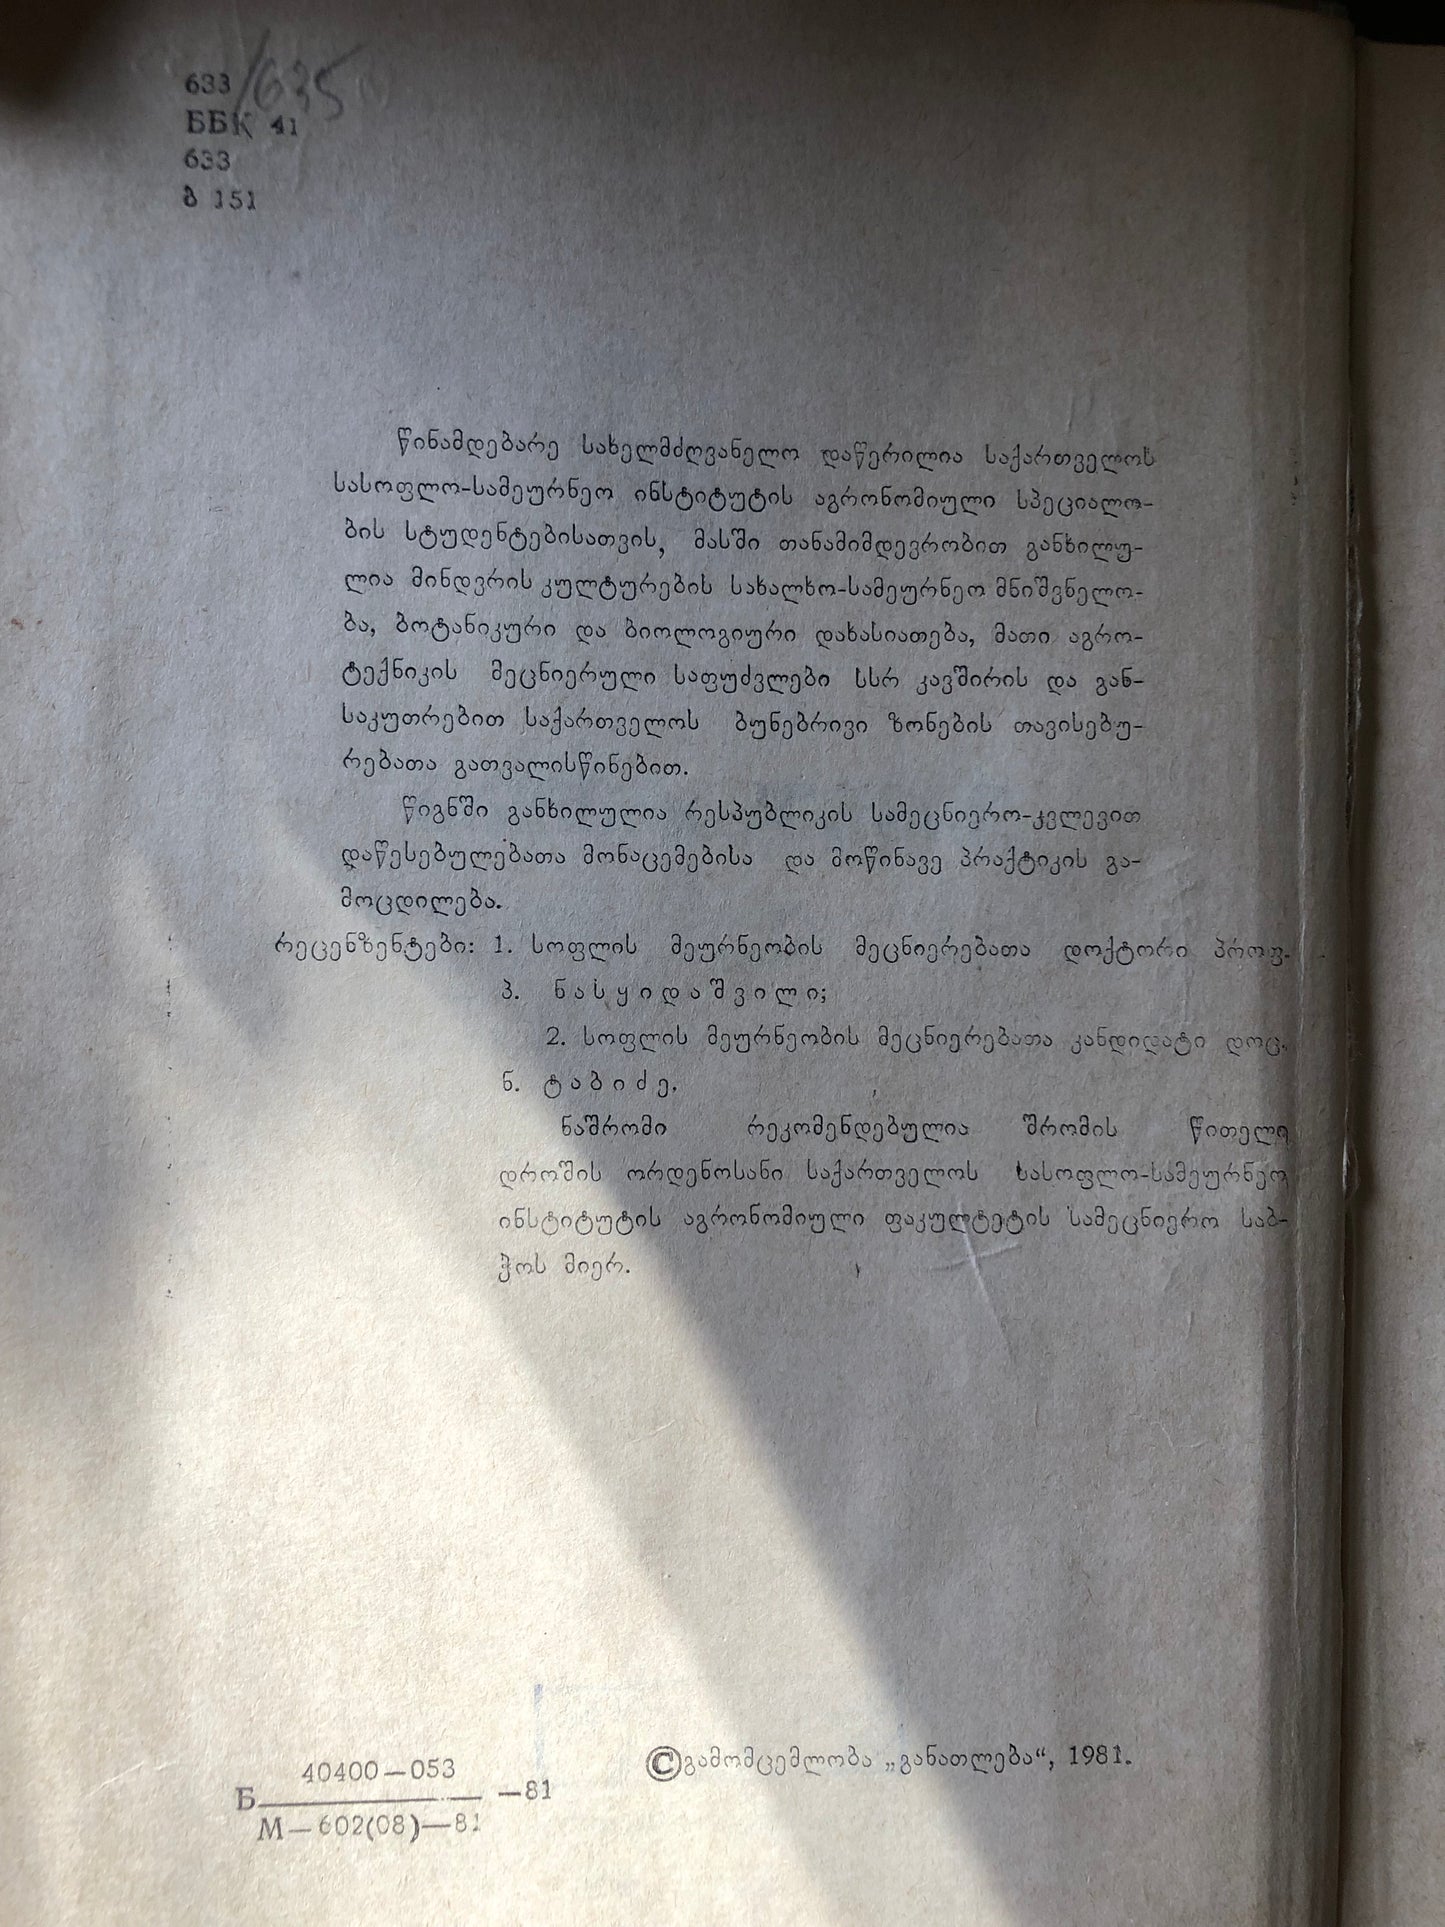 633/635
ББК 41
633
ბ 151
წინამდებარე სახელმძღვანელო დაწერილია საქართველოს
სასოფლო-სამეურნეო ინსტიტუტის აგრონომიული სპეციალო-
ბის სტუდენტებისათვის, მასში თანამიმდევრობით განხილუ-
ლია მინდვრის კულტურების სახალხო-სამეურნეო მნიშვნელო-
ბა, ბოტანიკური და ბიოლოგიური დახასიათება, მათი აგრო-
ტექნიკის მეცნიერული საფუძვლები სსრ კავშირის და გან-
საკუთრებით საქართველოს ბუნებრივი ზონების თავისებუ-
რებათა გათვალისწინებით.
წიგნში განხილულია რესპუბლიკის სამეცნიერო-კვლევით
დაწესებულებათა მონაცემებისა და მოწინავე პრაქტიკის გა-
მოცდილება.
რეცენზენტები: 1. სოფლის მეურნეობის მეცნიერებათა დოქტორი პროფ.
პ. ნასყიდაშვილი;
2. სოფლის მეურნეობის მეცნიერებათა კანდიდატი დოც.
ნ. ტაბიძე.
ნაშრომი რეკომენდებულია შრომის წითელი
დროშის ორდენოსანი საქართველოს სასოფლო-სამეურნეო
ინსტიტუტის აგრონომიული ფაკულტეტის სამეცნიერო საბ-
ჭოს მიერ.
40400—053
Б —81
М—602(08)—81
©გამომცემლობა „განათლება“, 1981.